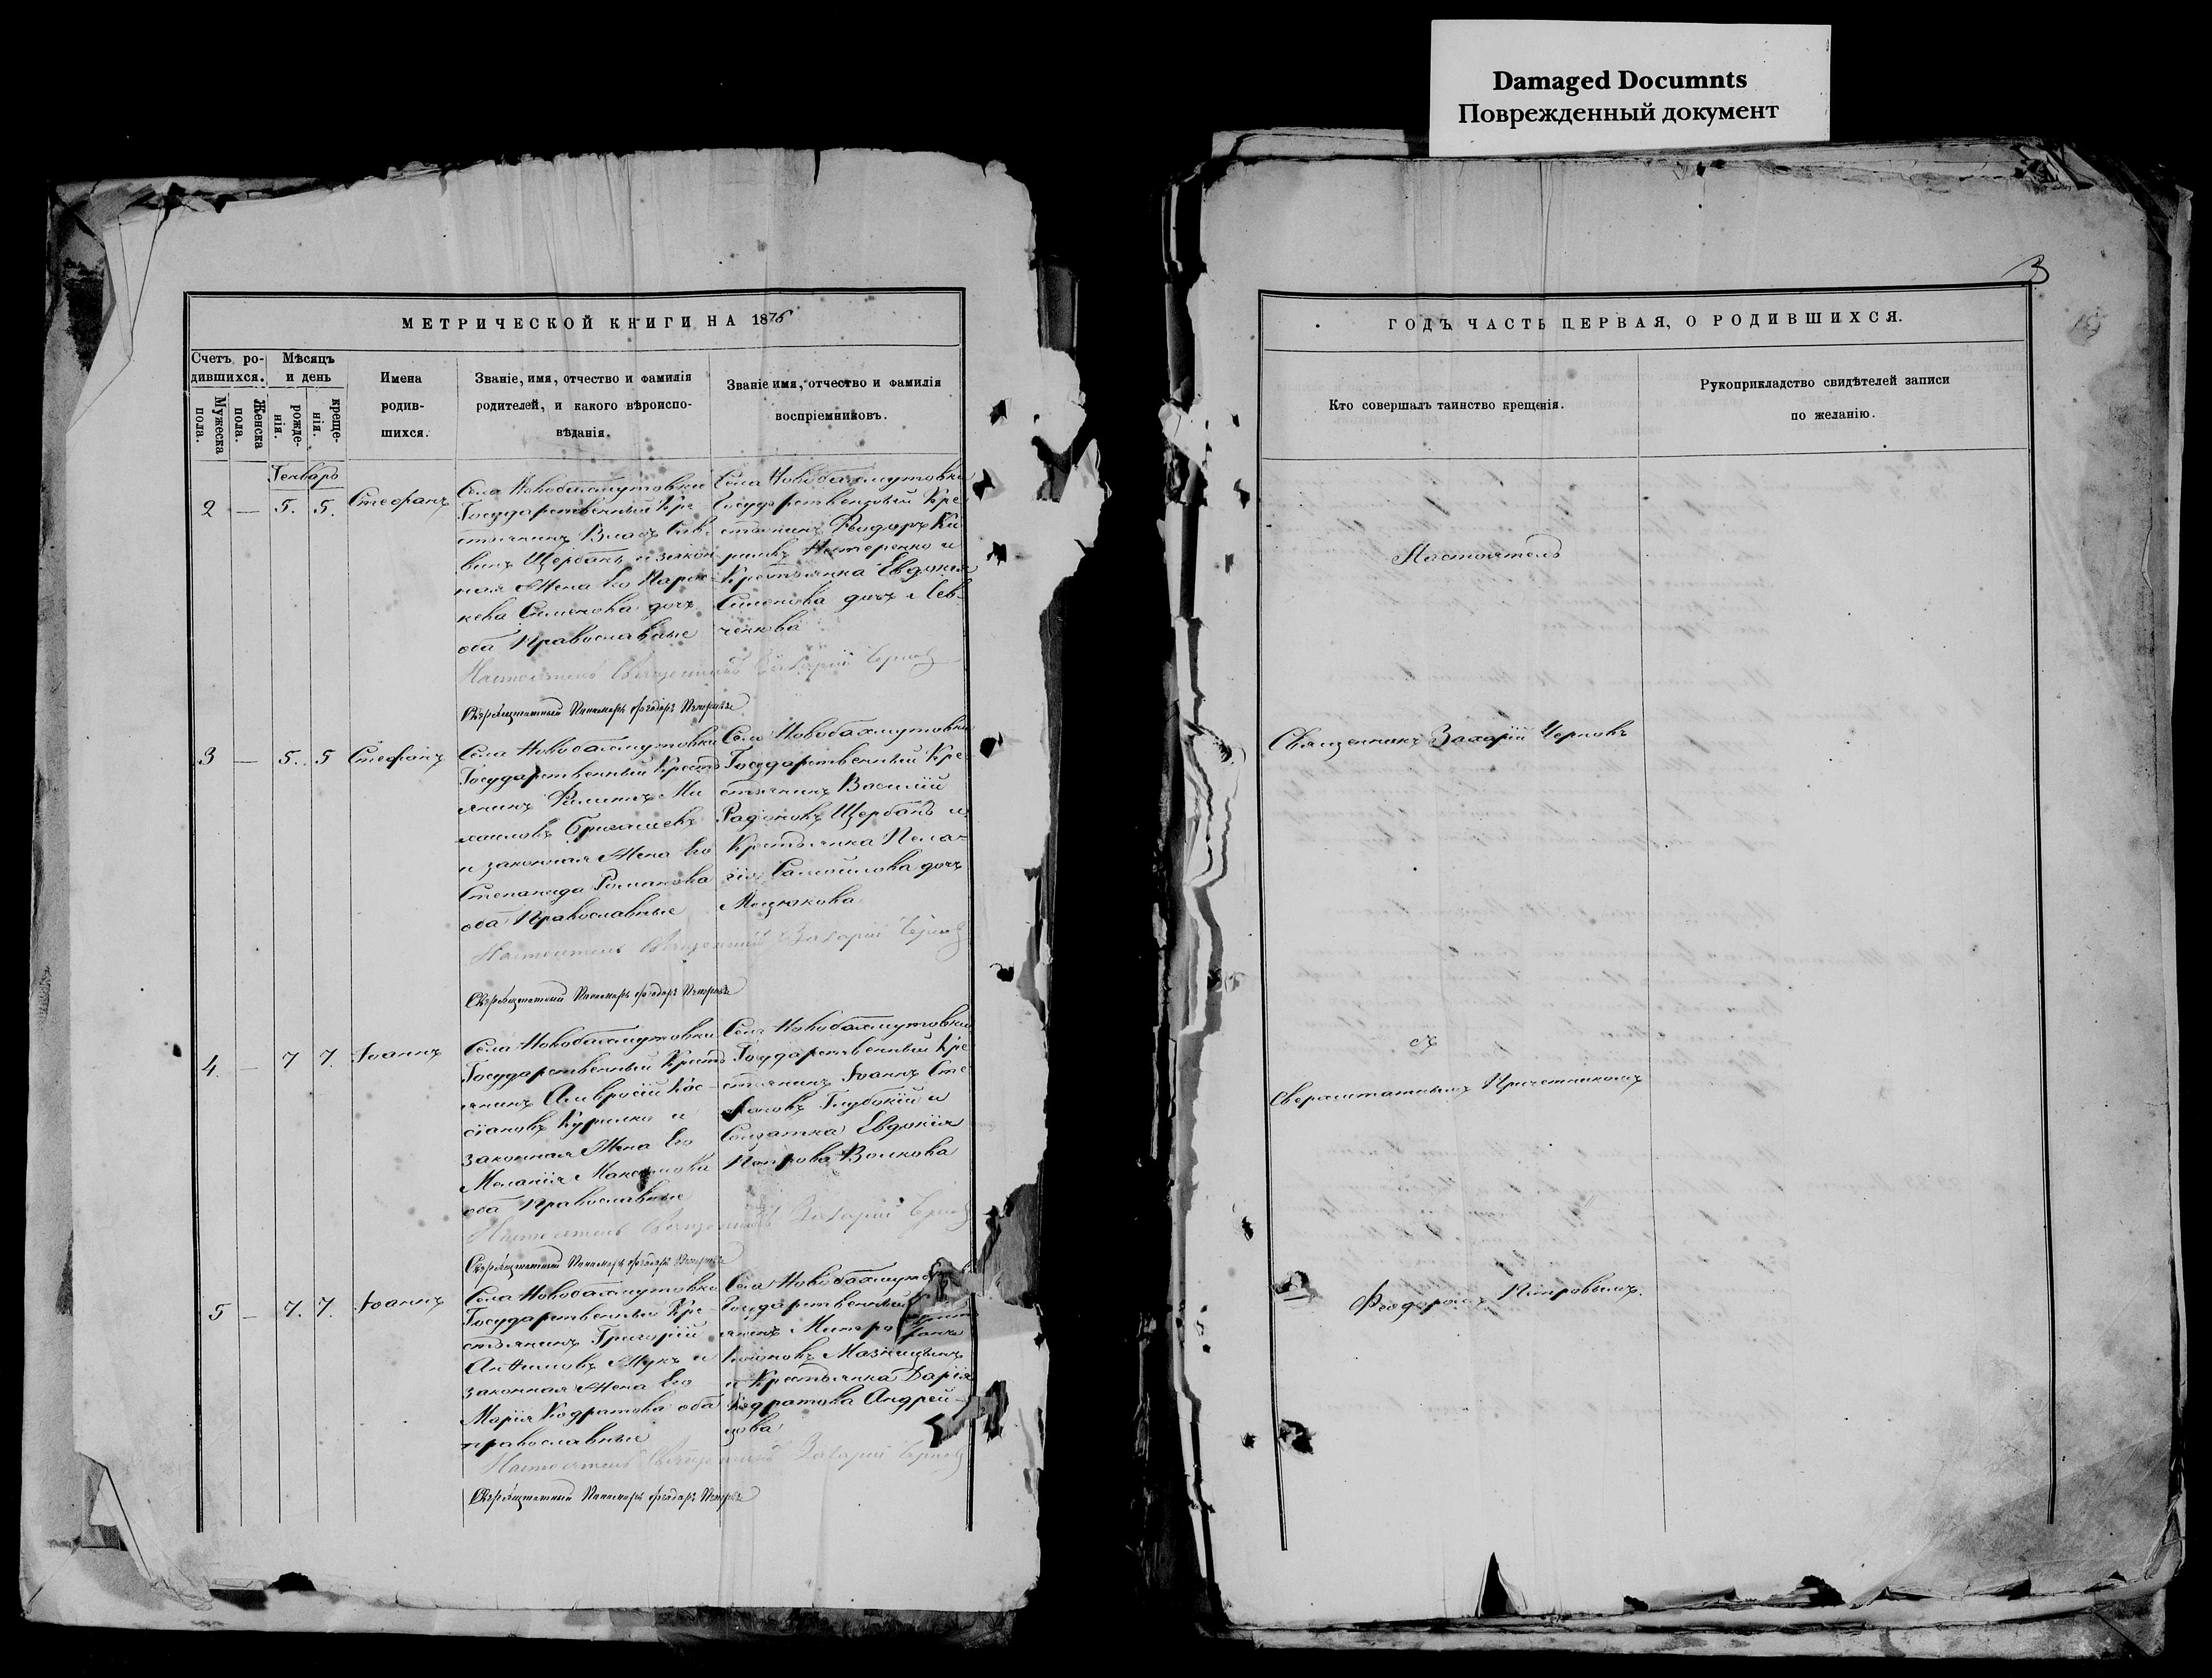 Damaged Documnts
Поврежденный документ
3
МЕТРИЧЕСКОЙ КНИГИ НА 1876
Счетъ ро-
дившихся.
Мужеска
пола.
Женска
пола.
Мѣсяцъ
и день
рожде-
нія.
креще-
нія.
Имена
родив-
шихся.
Званіе, имя, отчество и фамилія
родителей, и какого вѣроиспо-
вѣданія.
Званіе имя, отчество и фамилія
воспріемниковъ.
Генварь
2 — 5. 5. Стефанъ
Села Новобахмутовки
Государственный Кре
стьянинъ Власъ
Щербакъ и закон
ная жена его Парас
кева Сименова дочь
оба Православные
Села Новобахмутовки
Государственный Кре
стьянинъ Феодоръ Ки
риловъ Нестеренко и
Крестьянка Евдокія
Сименова дочь Лев-
ченкова
Настоятель Священникъ Захарій Черновъ
Сверхштатный Пономарь Феодоръ Петровъ
3 — 5. 5 Стефанъ
Села Новобахмутовки
Государственный Кресть
янинъ Филипъ Ми
хаиловъ
и законная жена его
Степанида Романова
оба Православные
Села Новобахмутовки
Государственный Кре
стьянинъ Василій
Родіоновъ Щербакъ и
Крестьянка Пела-
гія Самоилова дочь
Мецюкова
Настоятель Священникъ Захарій Черновъ
Сверхштатный Пономарь Феодоръ Петровъ
4. — 7 7. Іоаннъ
Села Новобахмутовки
Государственный Кресть
янинъ Амвросій Кас
сіановъ Курилко и
законная жена его
Меланія Максимова
оба Православные
Села Новобахмутовки
Государственный Кре
стьянинъ Іоаннъ Сте
фановъ Глубокій и
Солдатка Евдокія
Петрова Волкова
Настоятель Священникъ Захарій Черновъ
Сверхштатный Пономарь Феодоръ Петровъ
5 — 7. 7. Іоаннъ
Села Новобахмутовки
Государственный Кре-
стьянинъ Григорій
Анѳимовъ Жукъ и
законная жена его
Марія Кодратова оба
православные
Села Новобахмутов
Государственный
янинъ Митро фанъ
Мазницынъ
и Крестьянка Дарія
Кодратова Андрей-
цова
Настоятель Священникъ Захарій Черновъ
Сверхштатный Пономарь Феодоръ Петровъ
ГОДЪ ЧАСТЬ ПЕРВАЯ, О РОДИВШИХСЯ.
Кто совершалъ таинство крещенія.
Рукоприкладство свидѣтелей записи
по желанію.
Настоятель
Священникъ Захарій Черновъ
съ
Сверхштатнымъ Причетникомъ
Феодоромъ Петровымъ.